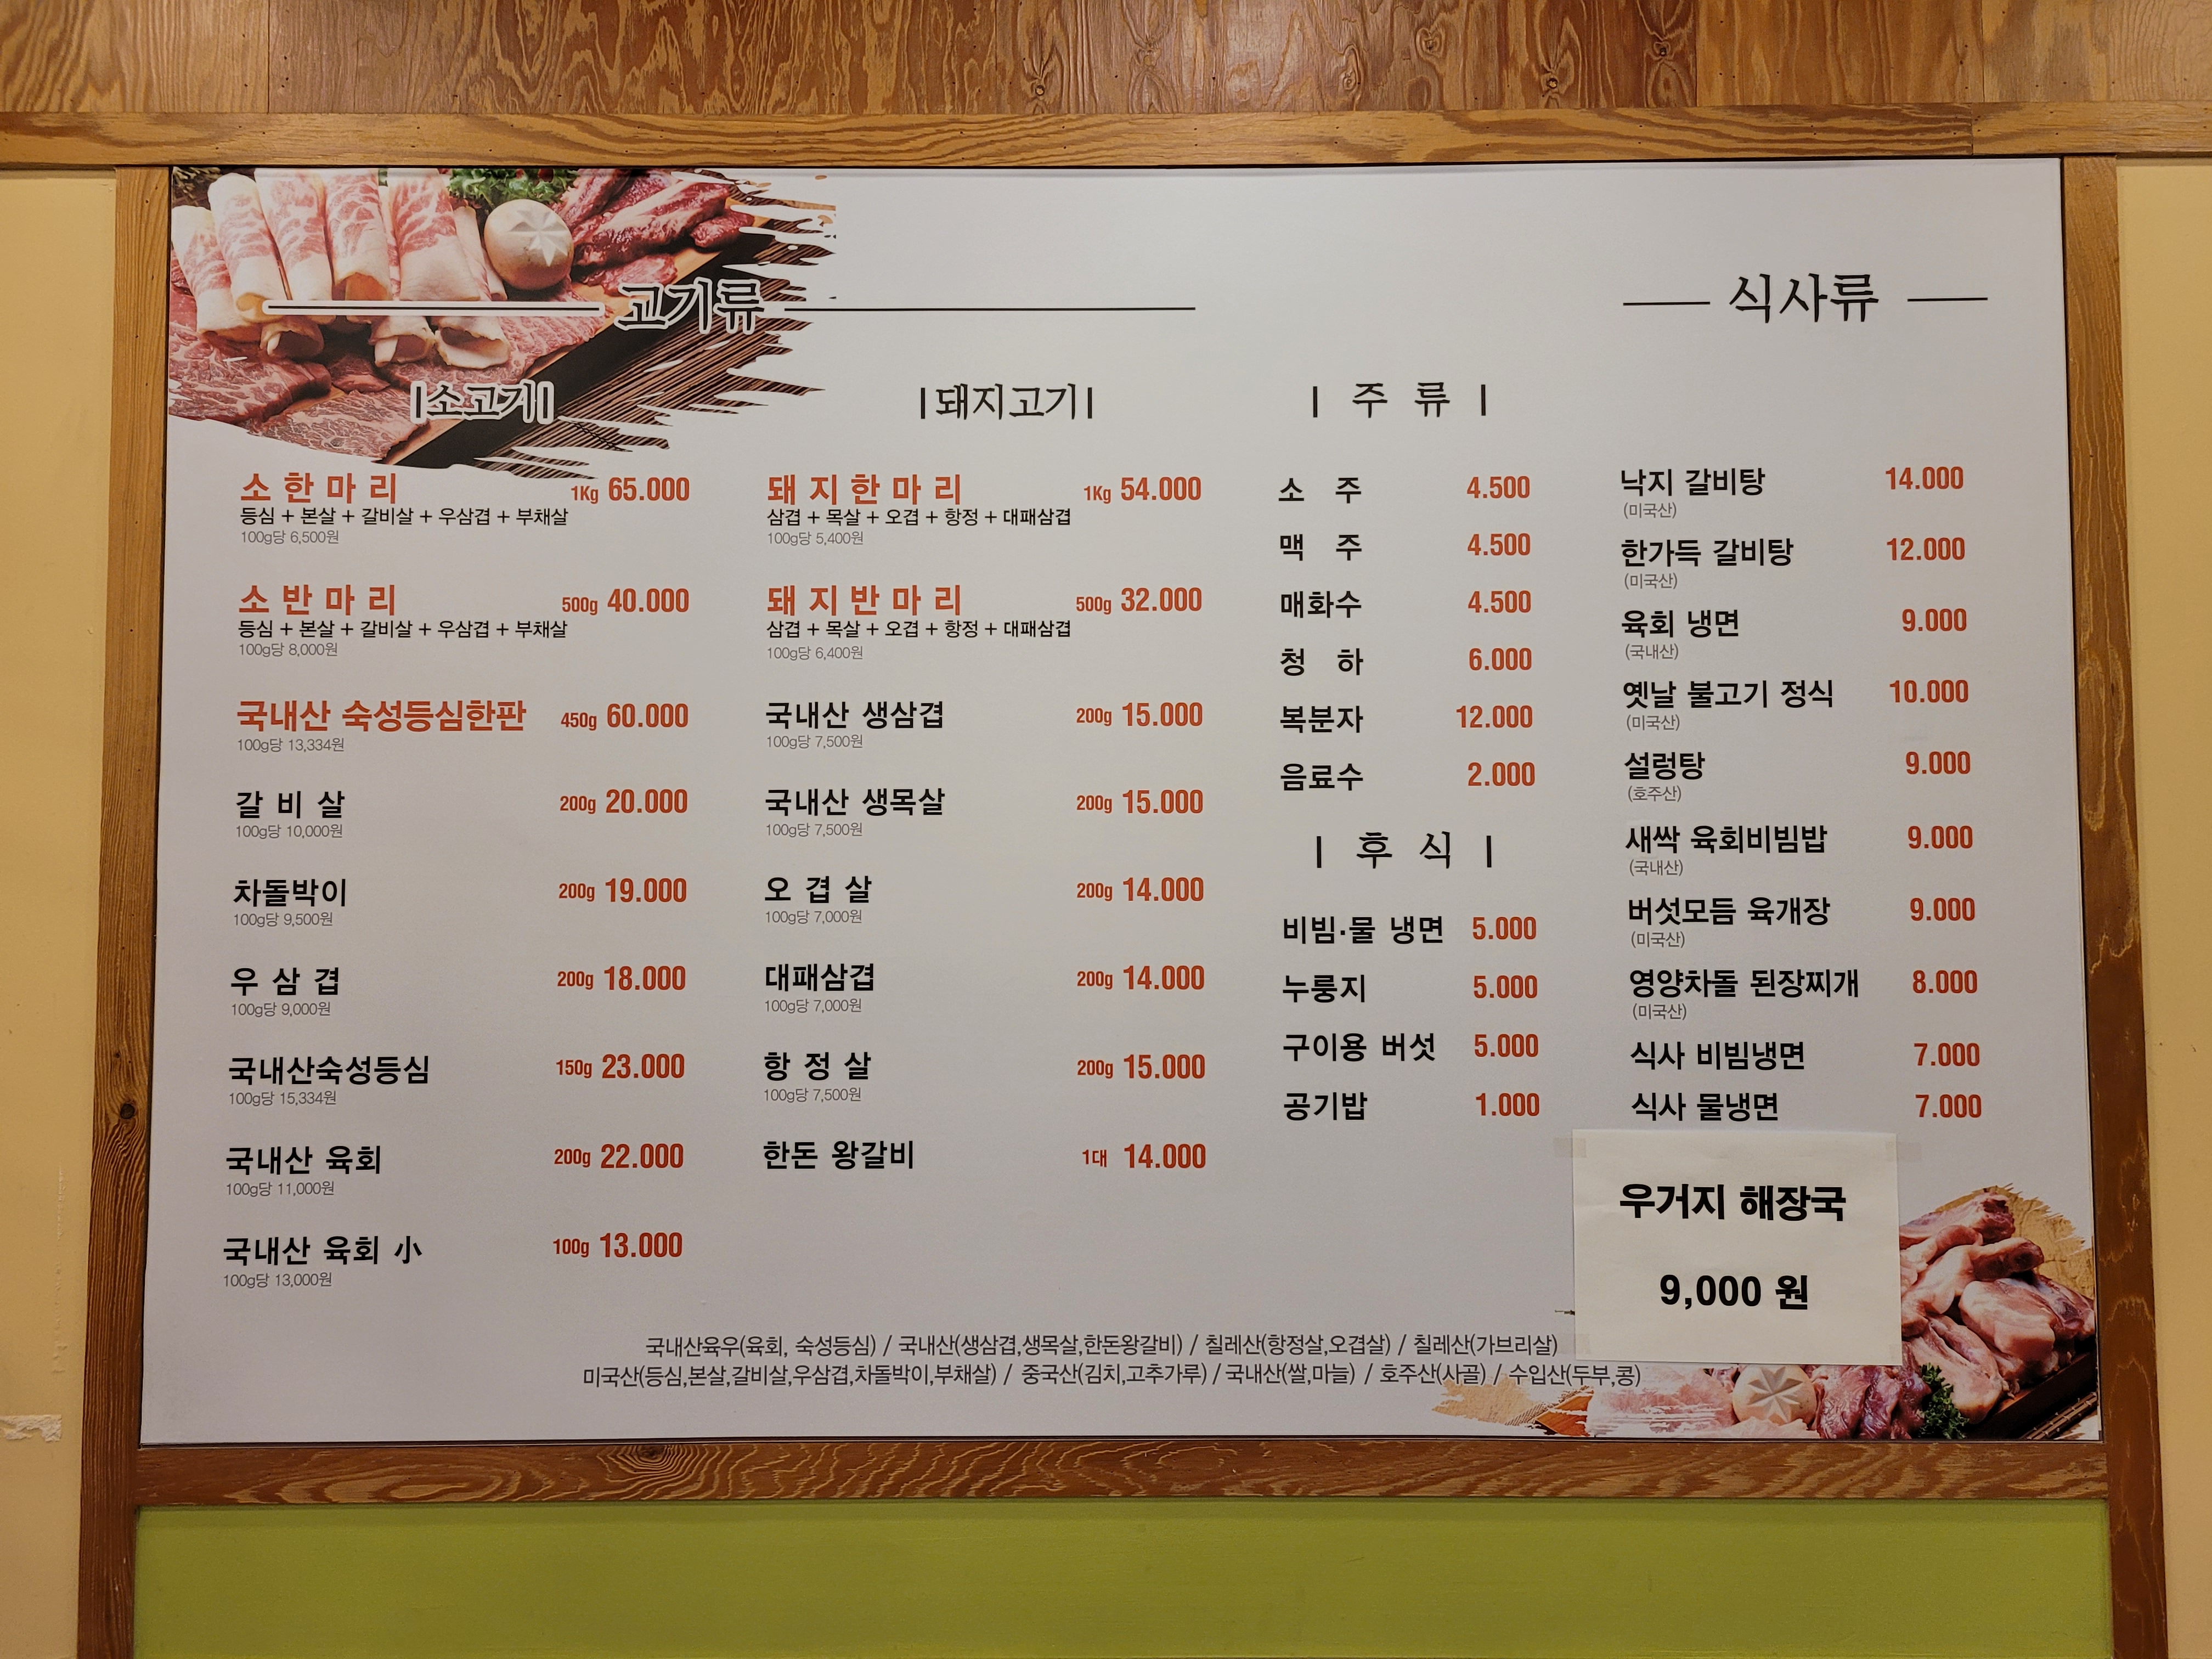 고기류
소고기
소 한 마 리 1Kg 65.000
등심 + 본살 + 갈비살 + 우삼겹 + 부채살
100g당 6,500원
소 반 마 리 500g 40.000
등심 + 본살 + 갈비살 + 우삼겹 + 부채살
100g당 8,000원
국내산 숙성등심한판 450g 60.000
100g당 13,334원
갈 비 살 200g 20.000
100g당 10,000원
차돌박이 200g 19.000
100g당 9,500원
우 삼 겹 200g 18.000
100g당 9,000원
국내산숙성등심 150g 23.000
100g당 15,334원
국내산 육회 200g 22.000
100g당 11,000원
국내산 육회 小 100g 13.000
100g당 13,000원
돼지고기
돼 지 한 마 리 1Kg 54.000
삼겹 + 목살 + 오겹 + 항정 + 대패삼겹
100g당 5,400원
돼 지 반 마 리 500g 32.000
삼겹 + 목살 + 오겹 + 항정 + 대패삼겹
100g당 6,400원
국내산 생삼겹 200g 15.000
100g당 7,500원
국내산 생목살 200g 15.000
100g당 7,500원
오 겹 살 200g 14.000
100g당 7,000원
대패삼겹 200g 14.000
100g당 7,000원
항 정 살 200g 15.000
100g당 7,500원
한돈 왕갈비 1대 14.000
주 류
소 주 4.500
맥 주 4.500
매화수 4.500
청 하 6.000
복분자 12.000
음료수 2.000
후 식
비빔·물 냉면 5.000
누룽지 5.000
구이용 버섯 5.000
공기밥 1.000
식사류
낙지 갈비탕 14.000
(미국산)
한가득 갈비탕 12.000
(미국산)
육회 냉면 9.000
(국내산)
옛날 불고기 정식 10.000
(미국산)
설렁탕 9.000
(호주산)
새싹 육회비빔밥 9.000
(국내산)
버섯모듬 육개장 9.000
(미국산)
영양차돌 된장찌개 8.000
(미국산)
식사 비빔냉면 7.000
식사 물냉면 7.000
우거지 해장국
9,000 원
국내산육우(육회, 숙성등심) / 국내산(생삼겹,생목살,한돈왕갈비) / 칠레산(항정살,오겹살) / 칠레산(가브리살)
미국산(등심,본살,갈비살,우삼겹,차돌박이,부채살) / 중국산(김치,고추가루) / 국내산(쌀,마늘) / 호주산(사골) / 수입산(두부,콩)